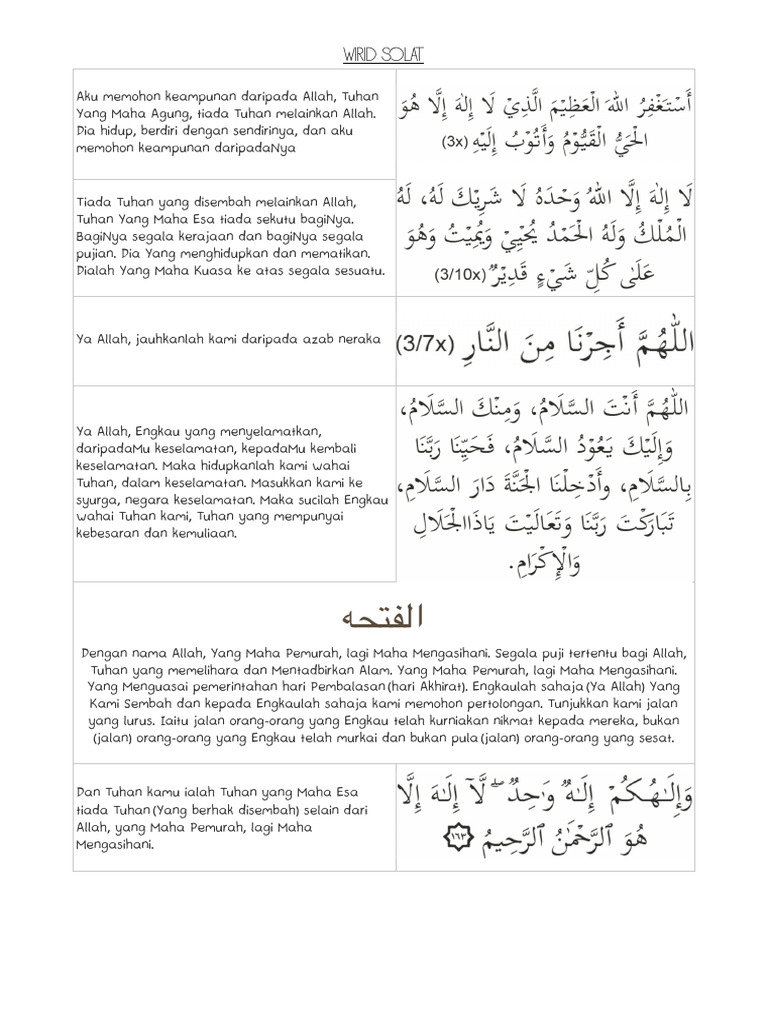 WIRID SOLAT
Aku memohon keampunan daripada Allah, Tuhan
Yang Maha Agung, tiada Tuhan melainkan Allah.
Dia hidup, berdiri dengan sendirinya, dan aku
memohon keampunan daripadaNya
أَسْتَغْفِرُ اللهَ الْعَظِيْمَ الَّذِيْ لَا إِلٰهَ إِلَّا هُوَ
الْحَيُّ الْقَيُّوْمُ وَأَتُوْبُ إِلَيْهِ (3x)
Tiada Tuhan yang disembah melainkan Allah,
Tuhan Yang Maha Esa tiada sekutu bagiNya.
BagiNya segala kerajaan dan bagiNya segala
pujian. Dia Yang menghidupkan dan mematikan.
Dialah Yang Maha Kuasa ke atas segala sesuatu.
لَا إِلٰهَ إِلَّا اللهُ وَحْدَهُ لَا شَرِيْكَ لَهُ، لَهُ
الْمُلْكُ وَلَهُ الْحَمْدُ يُحْيِيْ وَيُمِيْتُ وَهُوَ
عَلَى كُلِّ شَيْءٍ قَدِيْرٌ (3/10x)
Ya Allah, jauhkanlah kami daripada azab neraka
اللّٰهُمَّ أَجِرْنَا مِنَ النَّارِ (3/7x)
Ya Allah, Engkau yang menyelamatkan,
daripadaMu keselamatan, kepadaMu kembali
keselamatan. Maka hidupkanlah kami wahai
Tuhan, dalam keselamatan. Masukkan kami ke
syurga, negara keselamatan. Maka sucilah Engkau
wahai Tuhan kami, Tuhan yang mempunyai
kebesaran dan kemuliaan.
اللّٰهُمَّ أَنْتَ السَّلَامُ، وَمِنْكَ السَّلَامُ،
وَإِلَيْكَ يَعُوْدُ السَّلَامُ، فَحَيِّنَا رَبَّنَا
بِالسَّلَامِ، وَأَدْخِلْنَا الْجَنَّةَ دَارَ السَّلَامِ،
تَبَارَكْتَ رَبَّنَا وَتَعَالَيْتَ يَاذَاالْجَلَالِ
وَالْإِكْرَامِ.
الفتحه
Dengan nama Allah, Yang Maha Pemurah, lagi Maha Mengasihani. Segala puji tertentu bagi Allah,
Tuhan yang memelihara dan Mentadbirkan Alam. Yang Maha Pemurah, lagi Maha Mengasihani.
Yang Menguasai pemerintahan hari Pembalasan (hari Akhirat). Engkaulah sahaja (Ya Allah) Yang
Kami Sembah dan kepada Engkaulah sahaja kami memohon pertolongan. Tunjukkan kami jalan
yang lurus. Iaitu jalan orang-orang yang Engkau telah kurniakan nikmat kepada mereka, bukan
(jalan) orang-orang yang Engkau telah murkai dan bukan pula (jalan) orang-orang yang sesat.
Dan Tuhan kamu ialah Tuhan yang Maha Esa
tiada Tuhan (Yang berhak disembah) selain dari
Allah, yang Maha Pemurah, lagi Maha
Mengasihani.
وَإِلَٰهُكُمْ إِلَٰهٌ وَٰحِدٌ ۖ لَّآ إِلَٰهَ إِلَّا
هُوَ ٱلرَّحْمَٰنُ ٱلرَّحِيمُ ١٦٣